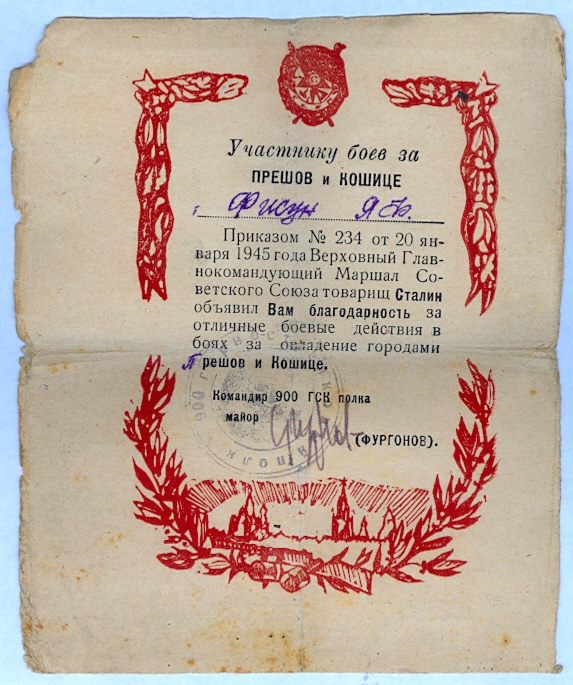 Участнику боев за
ПРЕШОВ и КОШИЦЕ
Фисун Я.Ф.
Приказом № 234 от 20 ян-
варя 1945 года Верховный Глав-
нокомандующий Маршал Со-
ветского Союза товарищ Сталин
объявил Вам благодарность за
отличные боевые действия в
боях за овладение городами
Прешов и Кошице.
Командир 900 ГСК полка
майор
(ФУРГОНОВ).